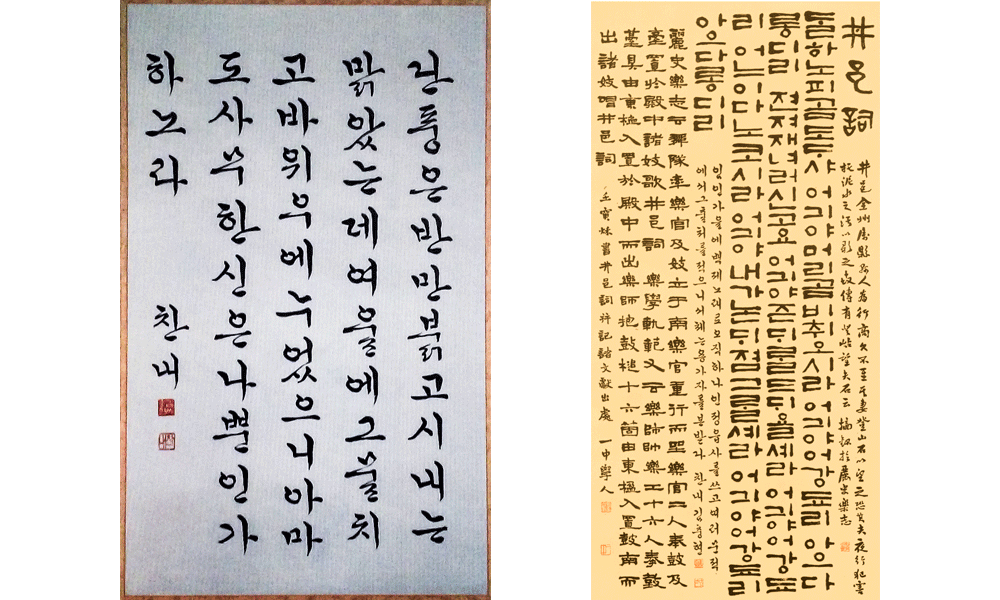 단풍은반만붉고시내는
맑았는데여울에그물치
고바위우에누었으니아마
도사무한신은나뿐인가
하노라 찬내
井邑詞
井邑全州屬縣縣人爲行商久不至其妻登山石以望之恐其夫夜行犯害
托泥水之汚以歌之世傳有登岾望夫石云 於麗史樂志
ᄃᆞᆯ하노피곰도ᄃᆞ샤 어긔야머리곰비취오시라 어긔야어강됴리 아으다
롱디리 젼져재녀러신고요 어긔야즌ᄃᆡᄅᆞᆯ드ᄃᆡ욜셰라 어긔야어강됴
리 어느이다노코시라 어긔야 내가논ᄃᆡ졈그ᄅᆞᆯ셰라 어긔야어강됴리
아으다롱디리
노래로오직하나인정읍사를쓰고여러문적
에서그출처를적으니서체는용가자를본받다 찬내 김충현
麗史樂志云舞隊率樂官及妓立于南樂官重行而坐樂官二人奉鼓及
臺置於殿中諸妓歌井邑詞 樂學軌範又云樂師帥樂工十六人奉鼓
臺具由東楹入置於殿中而出樂師抱鼓槌十六箇由東楹入置鼓南而
出諸妓唱井邑詞 壬寅秋書井邑詞幷記諸文獻出處 一中學人